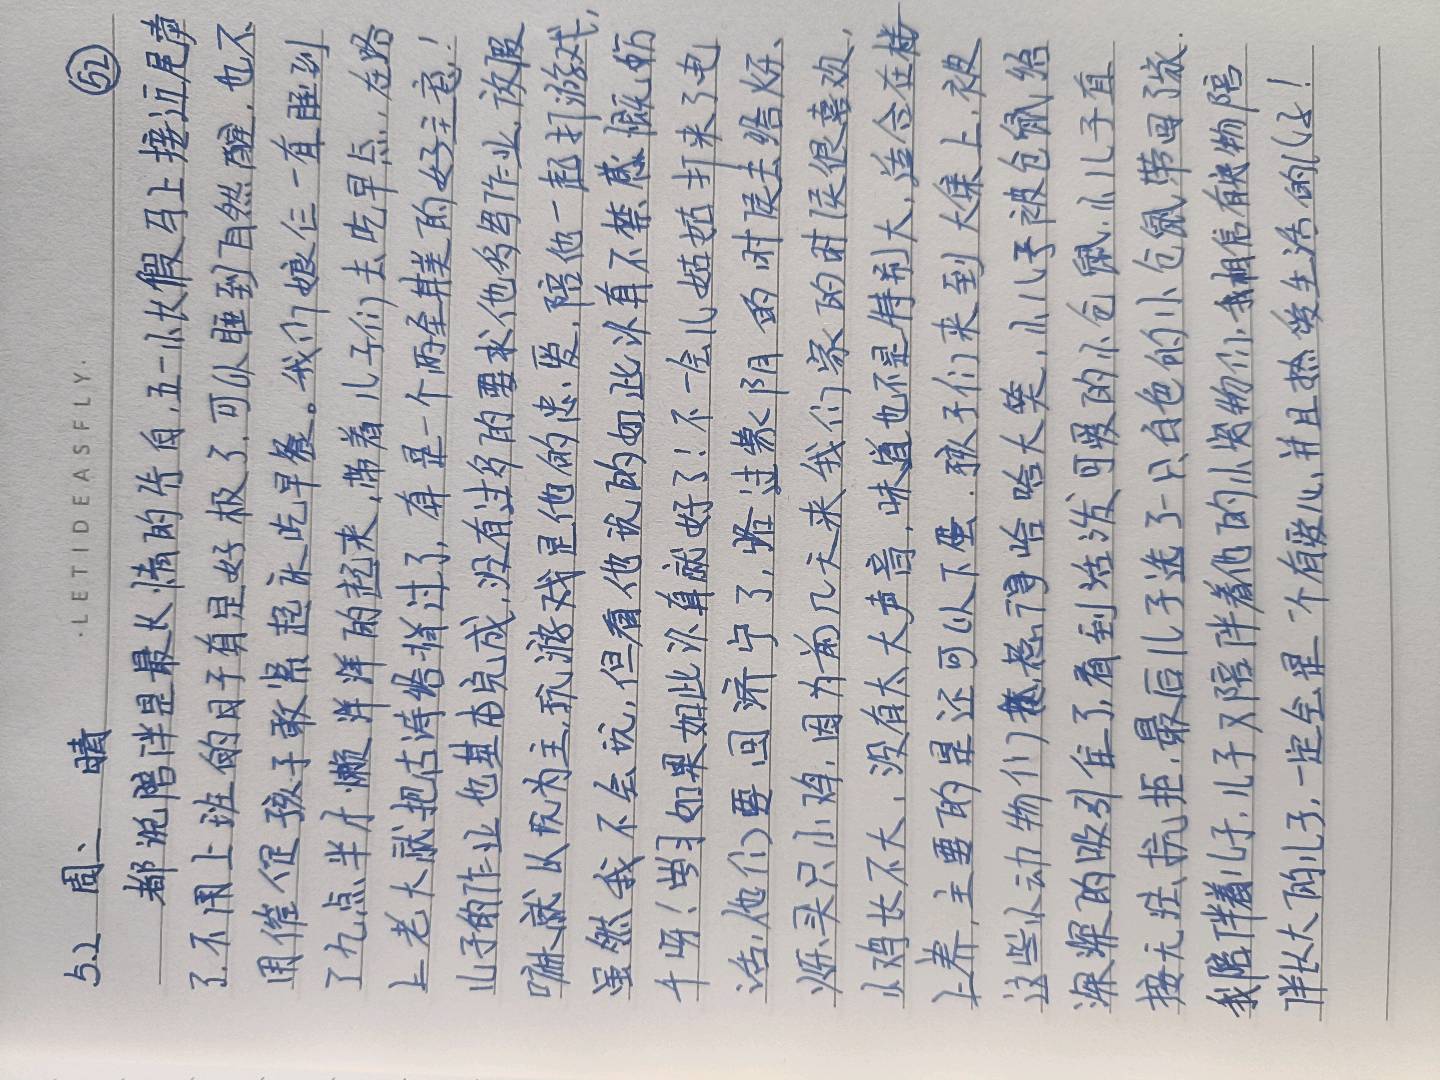 ·LETIDEASFLY·
5.2 周一 晴 52
都说陪伴是最长情的告白,五一小长假马上接近尾声
了.不用上班的日子真是好极了,可以睡到自然醒,也不
用催促孩子敢紧起床吃早餐。我们娘仨一直睡到
了九点半才懒洋洋的起来,带着儿子们去吃早点,在路
上老大就把古诗给背过了,真是一个两全其美的好主意!
儿子的作业也基本完成,没有过多的要求他多写作业,放假
嘛就以玩为主,玩游戏是他的忠爱,陪他一起打游戏,
虽然我不会玩,但看他玩的如此认真不禁感慨万
千呀!学习如果如此认真就好了!不一会儿姑姑打来了电
话,他们要回济宁了,路过蒙阴的时候去给妍
妍买只小鸡,因为前几天来我们家的时候很喜欢,
小鸡长不大,没有太大声音,味道也不是特别大,适合在楼
上养,主要的是还可以下蛋.孩子们来到大集上,被
这些小动物们惹得哈哈大笑,小儿子被仓鼠给
深深的吸引住了,看到活泼可爱的小仓鼠,小儿子直
接无法抗拒,最后儿子选了一只白色的小仓鼠带回了家.
我陪伴着儿子,儿子又陪伴着他的小宠物们,我相信有宠物陪
伴长大的儿子,一定会是一个有爱心,并且热爱生活的儿子!